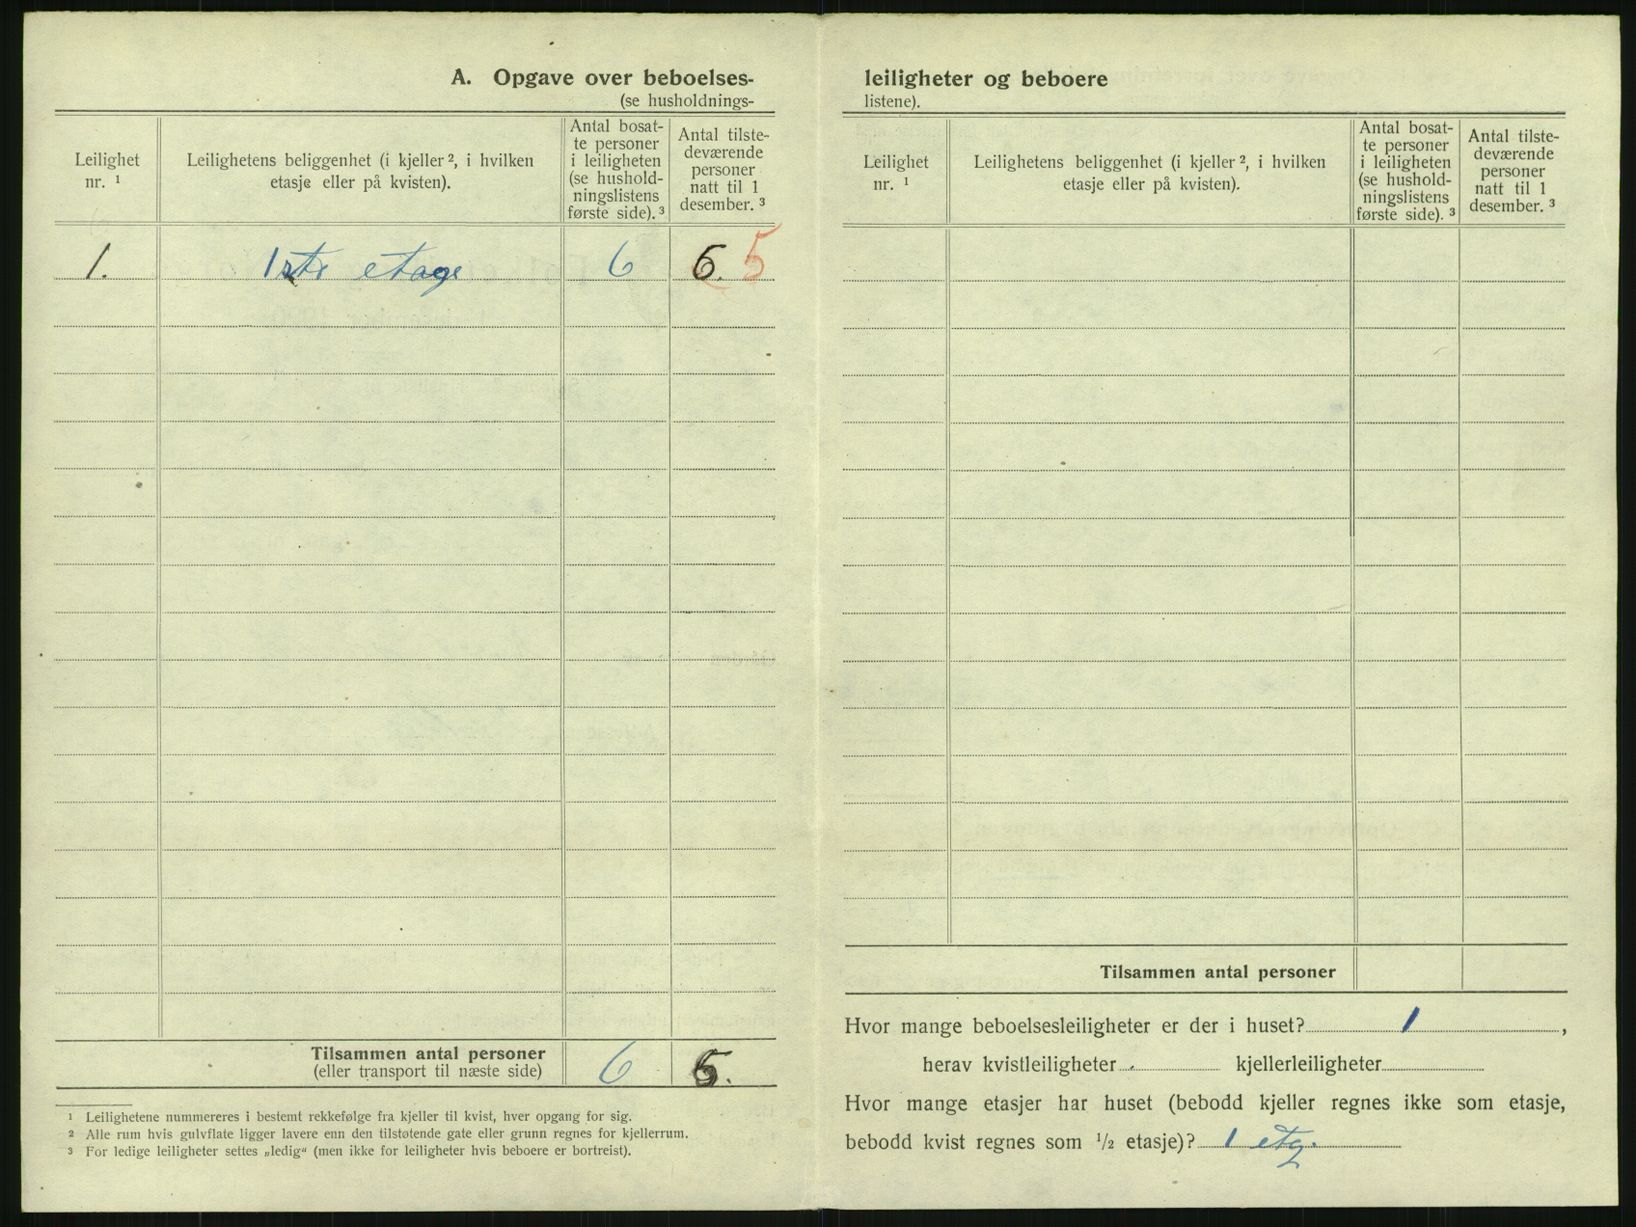 A. Opgave over beboelses-
(se husholdnings-
Leilighet
nr. ¹
Leilighetens beliggenhet (i kjeller ², i hvilken
etasje eller på kvisten).
Antal bosat-
te personer
i leiligheten
(se hushold-
ningslistens
første side). ³
Antal tilste-
deværende
personer
natt til 1
desember. ³
1. 1ste etage 6 6. 5
Tilsammen antal personer 6 6.
(eller transport til næste side)
¹ Leilighetene nummereres i bestemt rekkefølge fra kjeller til kvist, hver opgang for sig.
² Alle rum hvis gulvflate ligger lavere enn den tilstøtende gate eller grunn regnes for kjellerrum.
³ For ledige leiligheter settes „ledig“ (men ikke for leiligheter hvis beboere er bortreist).
leiligheter og beboere
listene).
Leilighet
nr. ¹
Leilighetens beliggenhet (i kjeller ², i hvilken
etasje eller på kvisten).
Antal bosat-
te personer
i leiligheten
(se hushold-
ningslistens
første side). ³
Antal tilste-
deværende
personer
natt til 1
desember. ³
Tilsammen antal personer
Hvor mange beboelsesleiligheter er der i huset? 1 ,
herav kvistleiligheter kjellerleiligheter
Hvor mange etasjer har huset (bebodd kjeller regnes ikke som etasje,
bebodd kvist regnes som ½ etasje)? 1 etg.